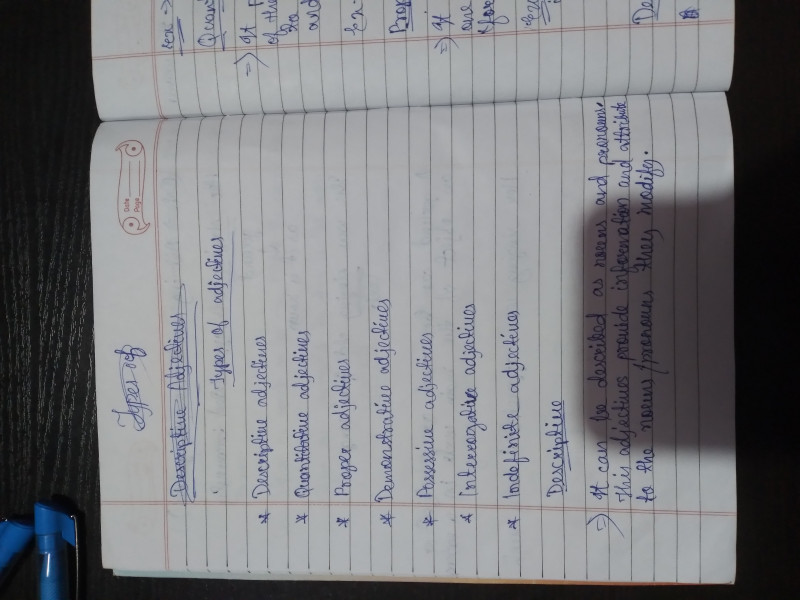 Date
Page
Types of
Descriptive Adjectives
Types of adjectives
* Descriptive adjectives
* Quantitative adjectives
* Proper adjectives
* Demonstrative adjectives
* Possessive adjectives
* Interrogative adjectives
* Indefinite adjectives
Descriptive
=> It can be described as nouns and pronouns.
This adjectives provide information and attribute
to the nouns/pronouns they modify.
=> It
of the
and
=> It
one